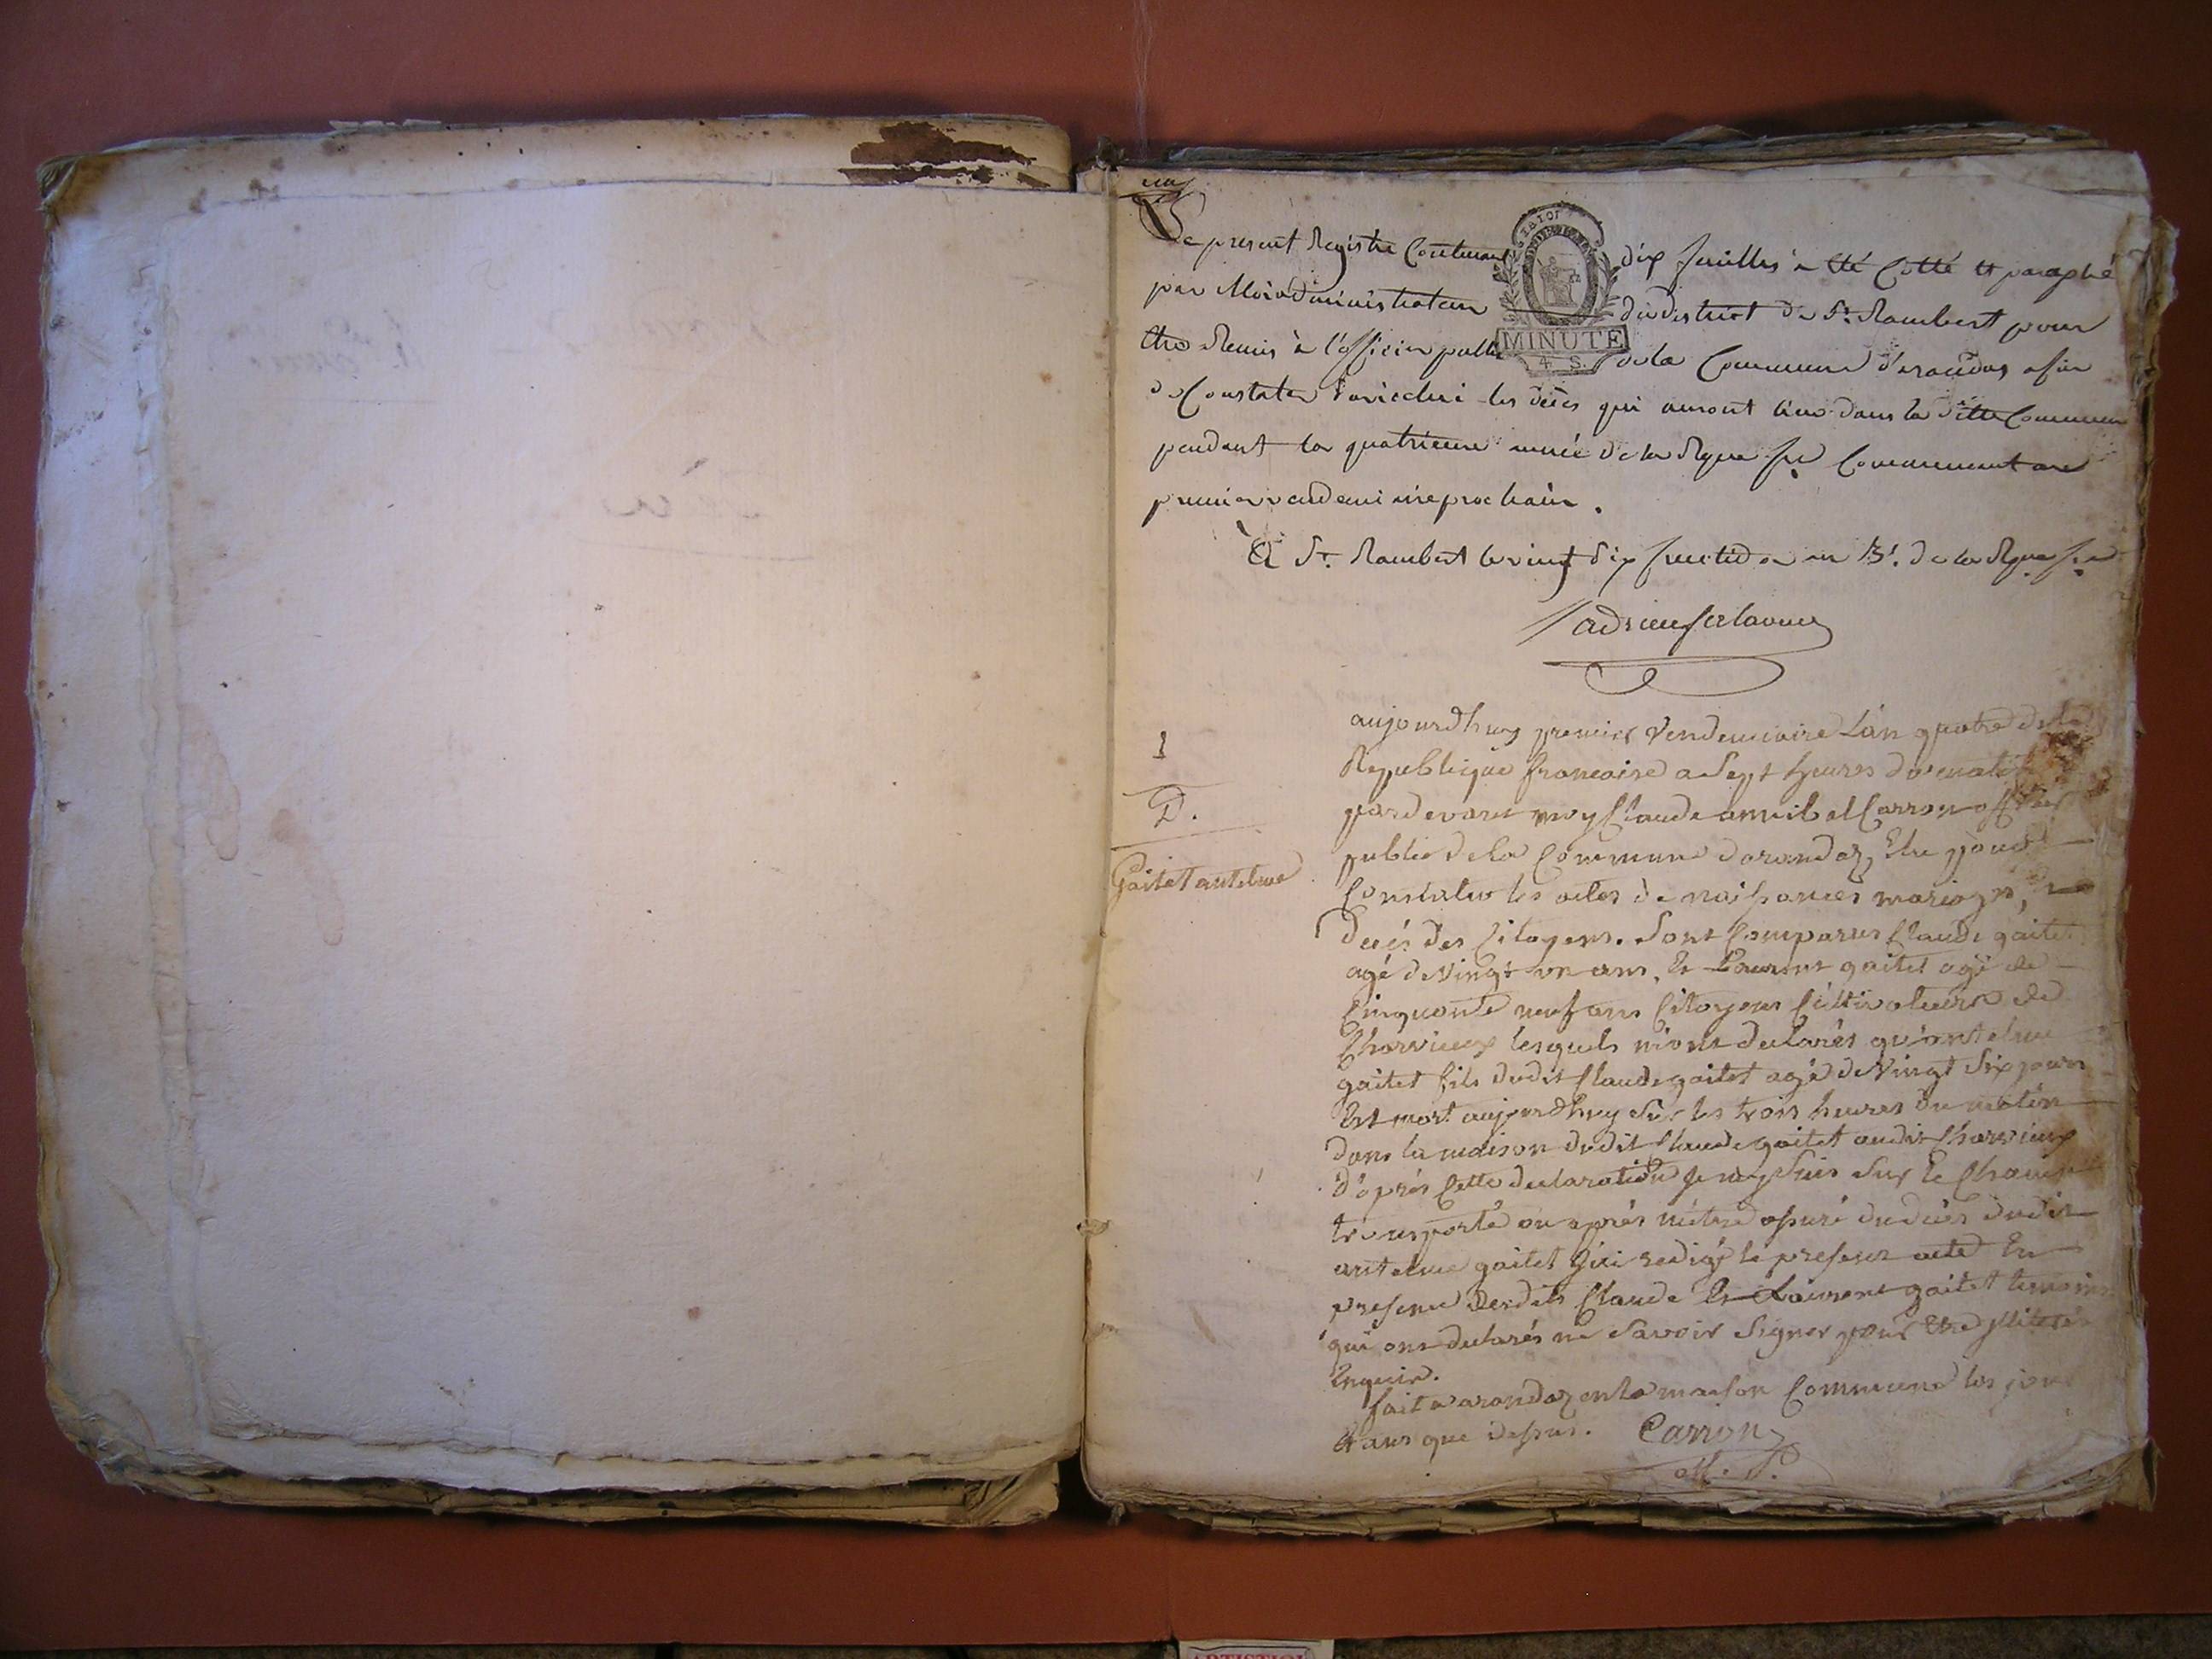 un
Le present Registre Contenant dix feuilles à été Cotté et paraphé
par Moi administrateur du district de St. Rambert pour
être Remis à l'officier public de la Commune d'arandas afin
de Constater Sur icelui les décès qui auront lieu dans la ditte Commune
pendant la quatrieme année de la Rque fse Commencant au
premier vendemiaire prochain.
MINUTE
4. S.
à St. Rambert le vingt six fructidor an 3e. de la Rque fse
1
D.
Gaitet antelme
aujourdhuy premier Vendemiaire L'an quatre de la
Republique francaise a Sept heures du matin
pardevant moy Claude annibal Carron officier
public de la Commune darandaz, Elu pour
Constater les actes de naissances mariages,
decés des Citoyens. Sont Comparus Claude gaitet
agé de Vingt un ans, Et Laurent gaitet agé de
Cinquante neuf ans Citoyens Cultivateurs de
Charvieux lesquels m'ont declarés qu'antelme
gaitet fils dudit Claude gaitet agé de Vingt Six jours
Est mort aujourdhuy Sur les trois heures du matin
dans la maison dudit Claude gaitet audit Charvieux
d'aprés Cette declaration je my Suis Sur le Champ
transporté ou aprés m'etre assuré du decés dudit
antelme gaitet j'ai redigé le present acte En
presence desdits Claude Et Laurent gaitet temoins
qui ont declarés ne Savoir Signer pour Etre jlliterés
Enquis.
fait a arandaz en la maison Commune les jour
et ans que dessus. Carron